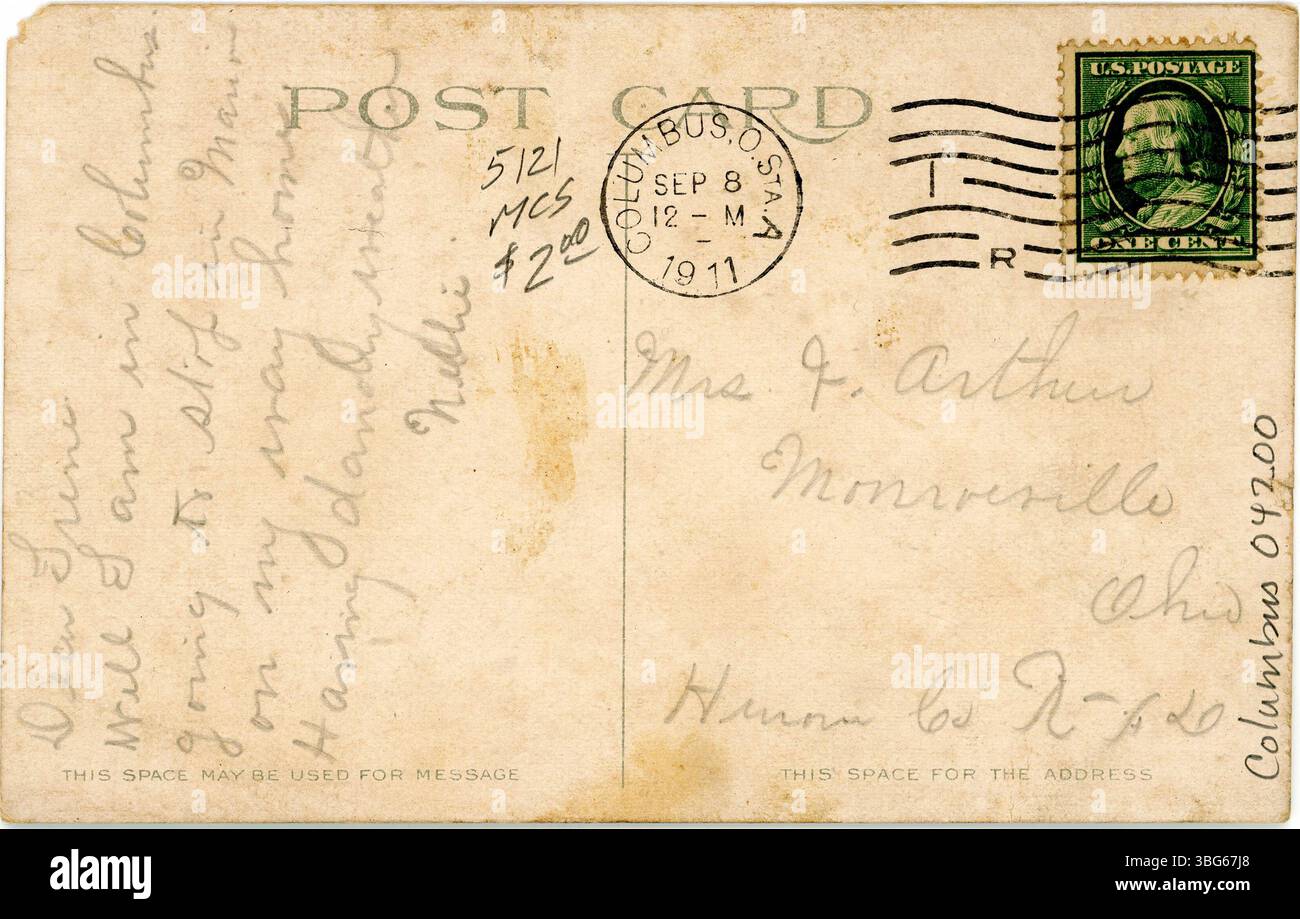 POST CARD
U.S. POSTAGE
ONE CENT
COLUMBUS, O. STA. A
SEP 8
12 - M
1911
R
5121
MCS
$2.00
Dear Irene
Well I am in Columbus
going to stop in
on my way home
Having dandy weather
Nellie
Mrs. J. Arthur
Monroeville
Ohio
Huron Co R-F D
Columbus 04200
THIS SPACE MAY BE USED FOR MESSAGE
THIS SPACE FOR THE ADDRESS
alamy
Image ID: 3BG67J8
www.alamy.com